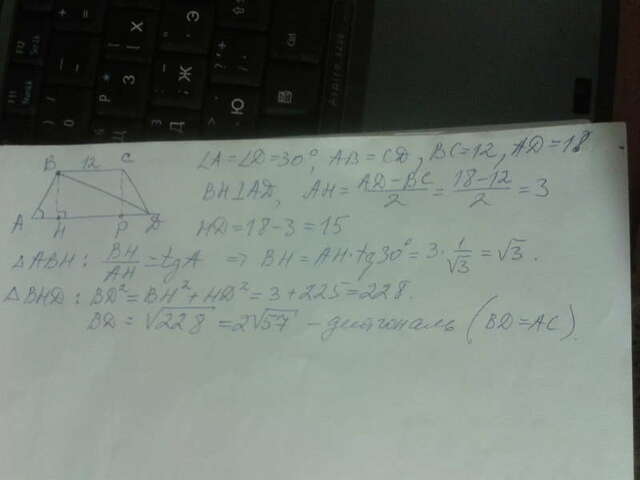 ∠A=∠D=30°, AB=CD, BC=12, AD=18
B 12 C
BH⊥AD, AH = (AD-BC)/2 = (18-12)/2 = 3
A H P D
HD=18-3=15
△ABH: BH/AH = tgA ⇒ BH=AH·tg30°=3·1/√3=√3.
△BHD: BD²=BH²+HD²=3+225=228.
BD=√228=2√57 - диагональ (BD=AC).